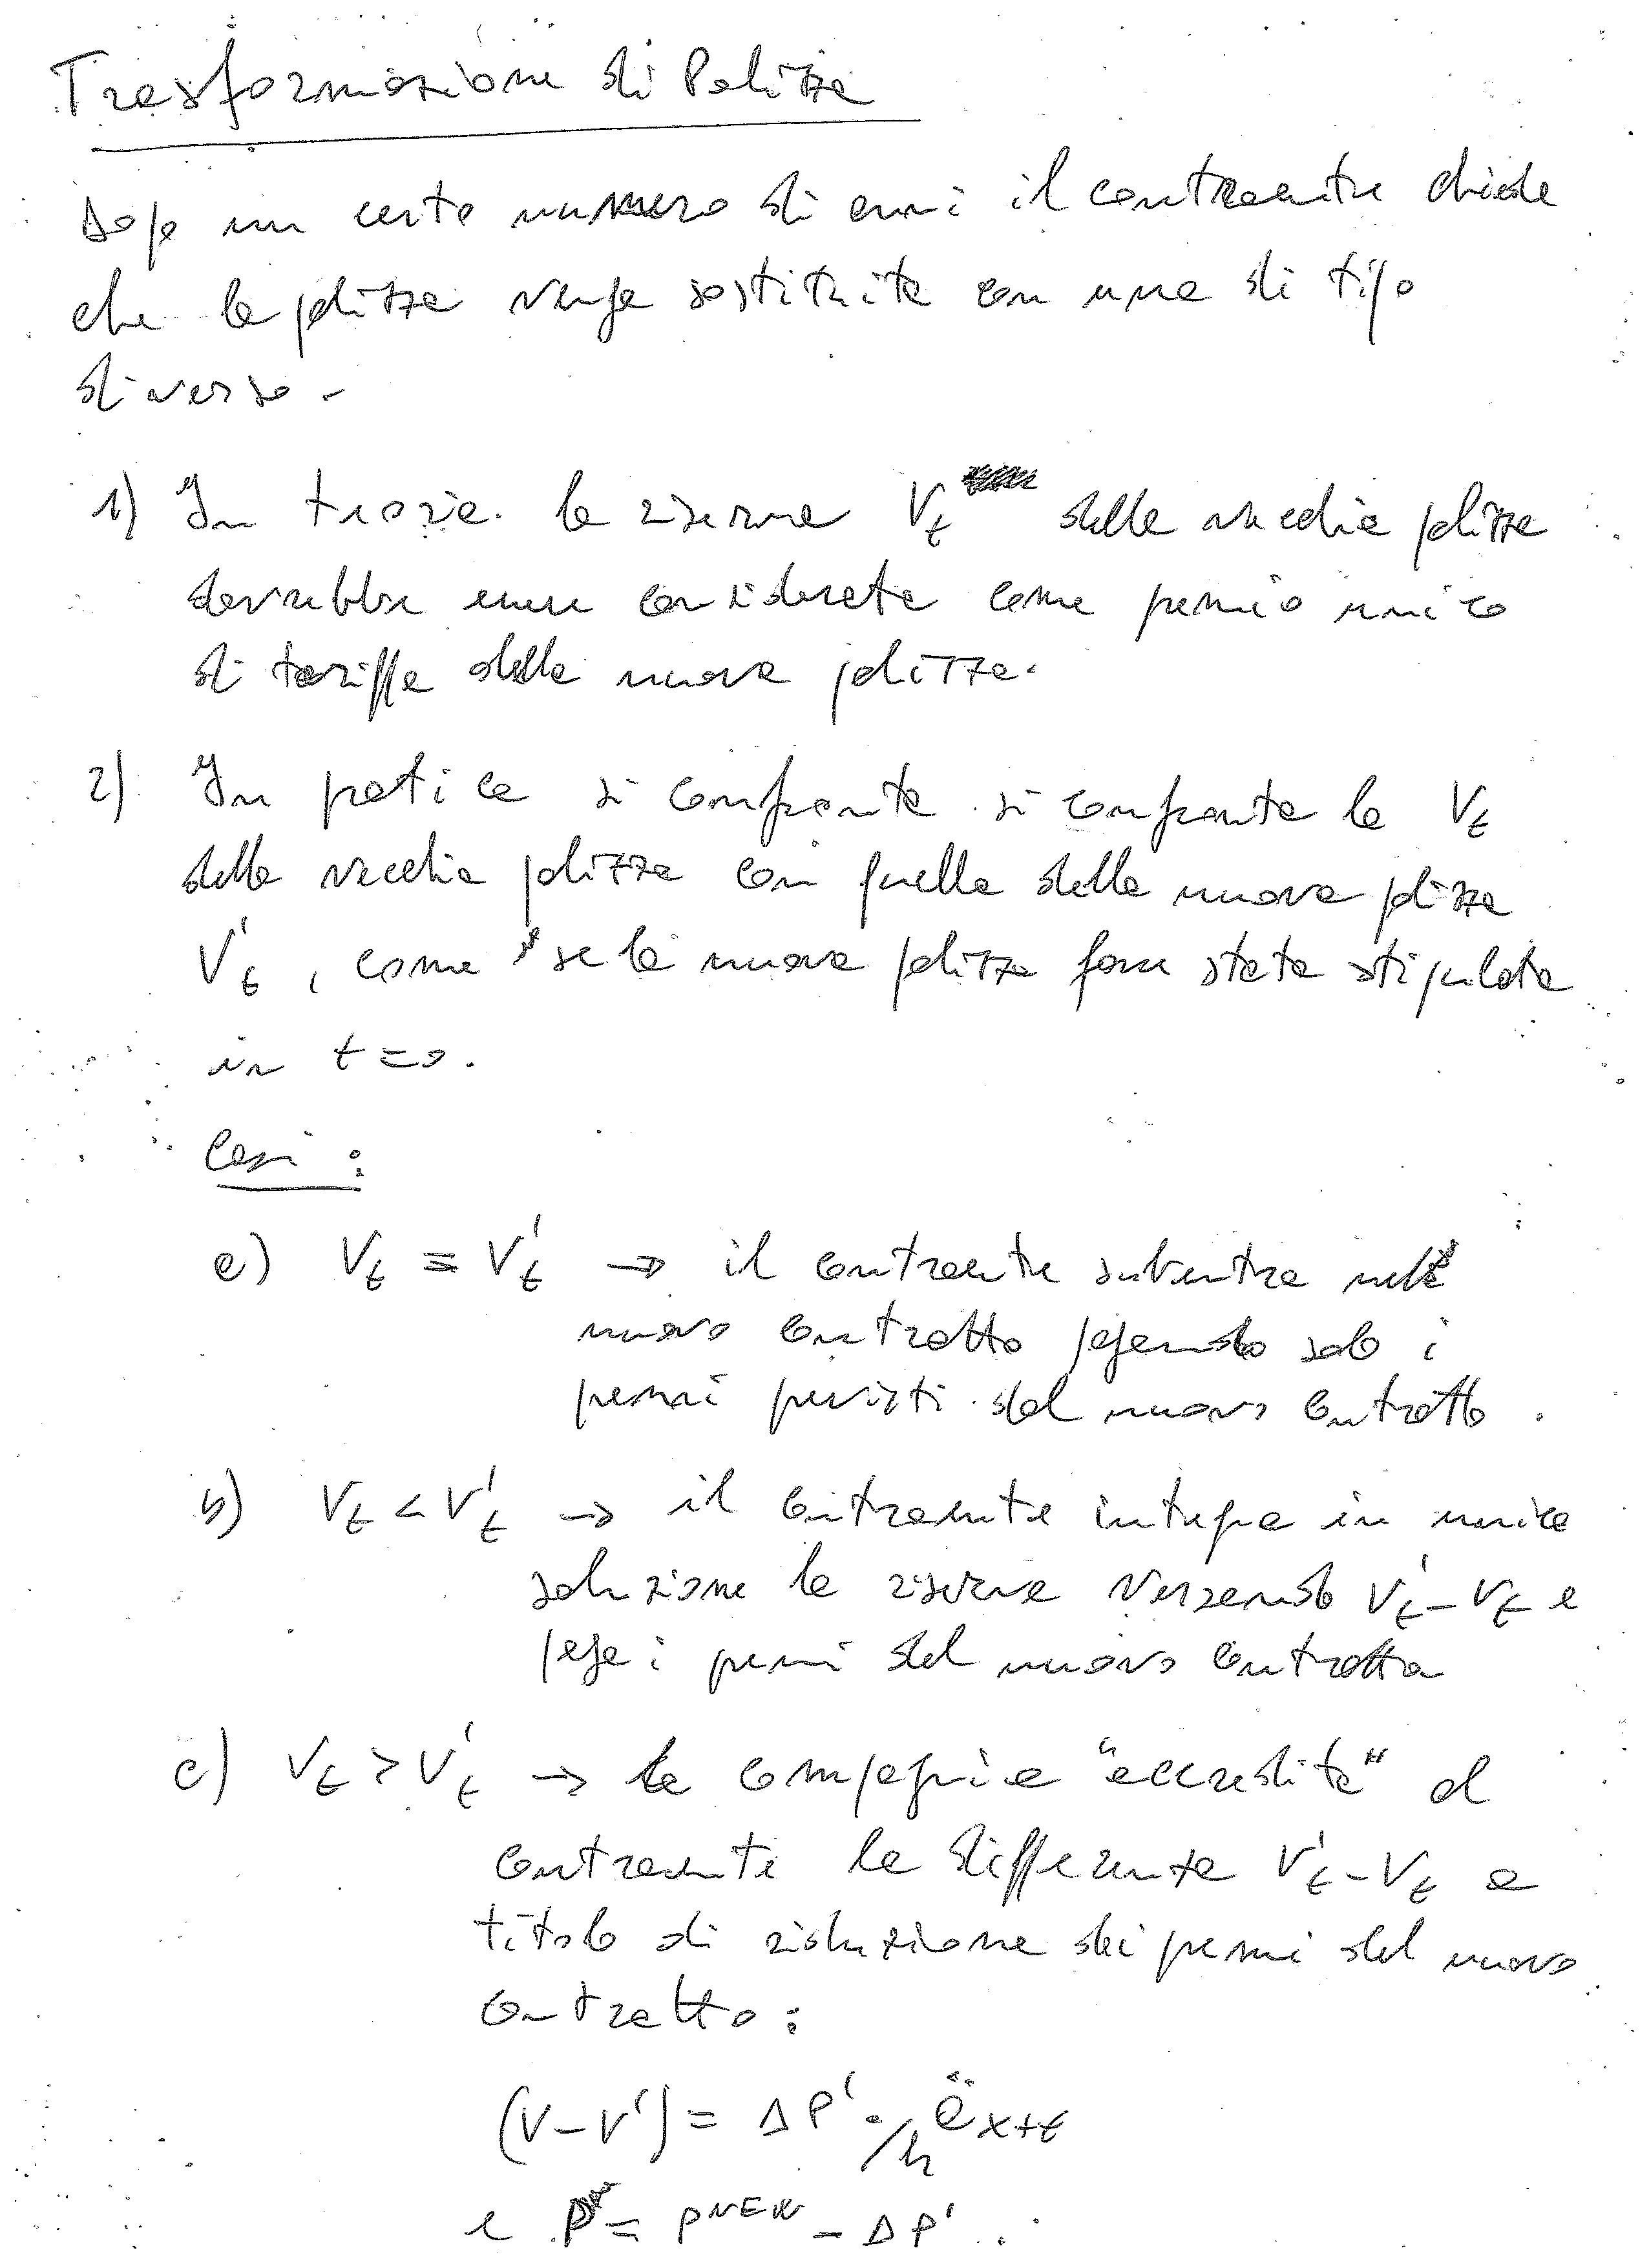 Trasformazione di Polizza
Dopo un certo numero di anni il contraente chiede
che la polizza venga sostituita con una di tipo
diverso.
1) In teoria la riserva Vt della vecchia polizza
dovrebbe essere considerata come premio unico
di tariffa della nuova polizza.
2) In pratica si confronta si confronta la Vt
della vecchia polizza con quella della nuova polizza
V't, come se la nuova polizza fosse stata stipulata
in t=0.
Casi:
a) Vt = V't → il contraente subentra nel
nuovo contratto pagando solo i
premi previsti dal nuovo contratto.
b) Vt < V't → il contraente integra in unica
soluzione la riserva versando V't - Vt e
paga i premi del nuovo contratto
c) Vt > V't → la compagnia "accredita" al
contraente la differenza V't - Vt a
titolo di riduzione dei premi del nuovo
contratto:
(V-V') = ΔP' · /h äx+t
e P = P^NEW - ΔP'.